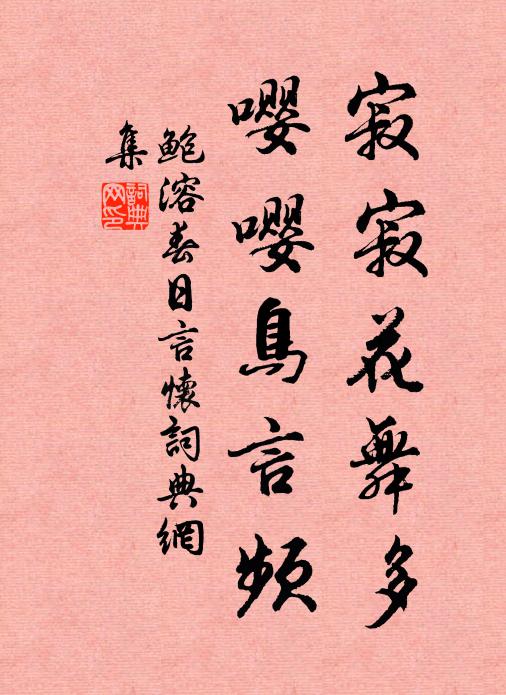 寂寂花舞多
嚶嚶鳥言頻
鮑溶春日言懷詞典網
集
詞典
网印